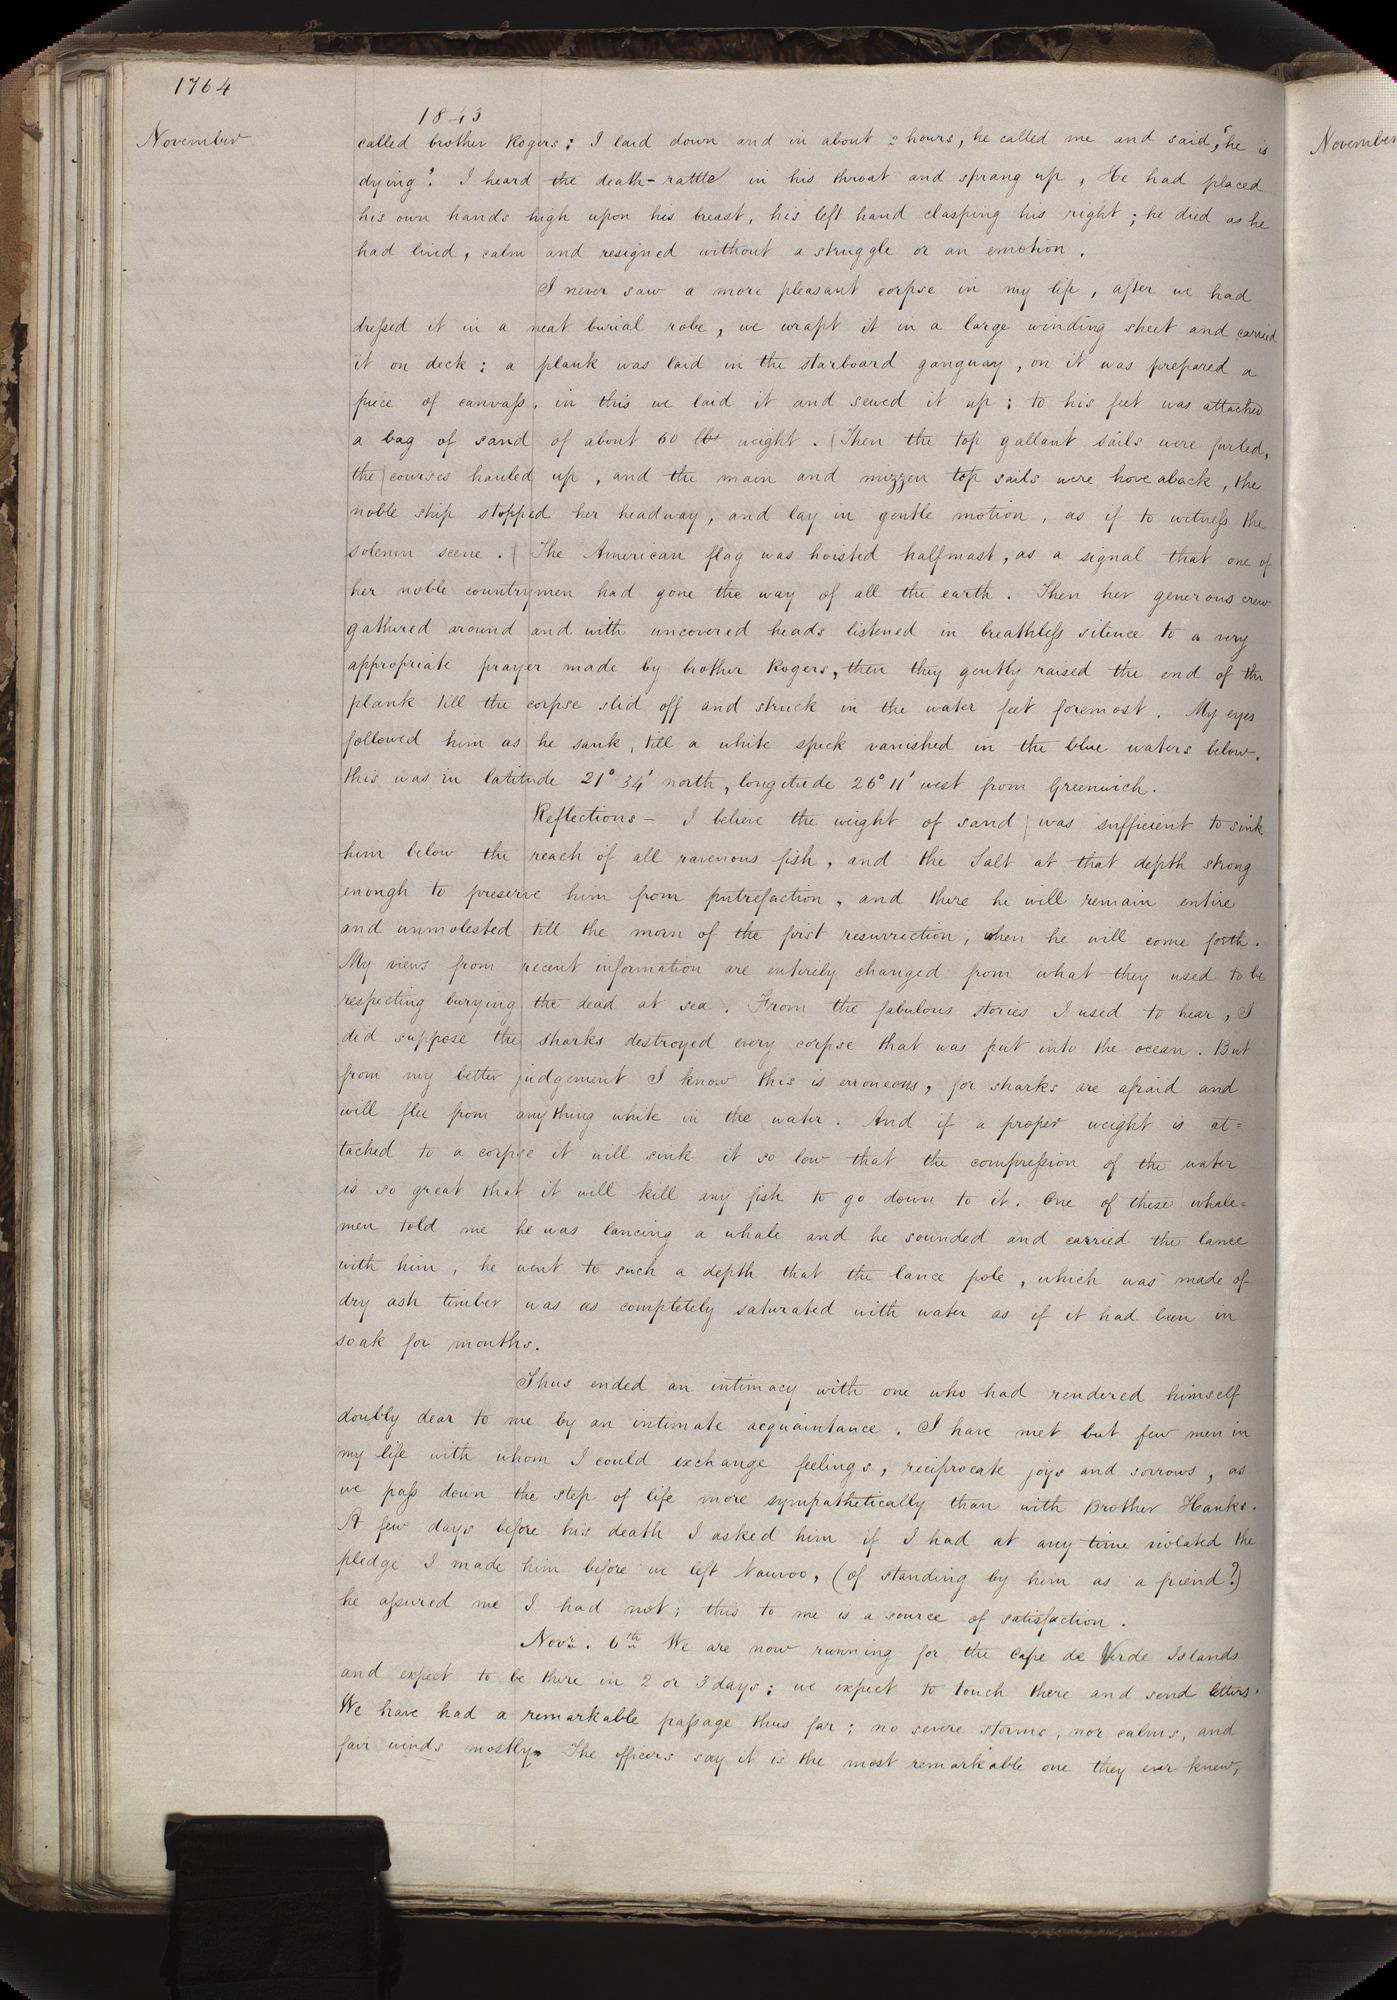 1764
1843
November
called brother Rogers; I laid down and in about 2 hours, he called me and said, "he is
dying". I heard the death-rattle in his throat and sprang up, He had placed
his own hands high upon his breast, his left hand clasping his right; he died as he
had lived, calm and resigned without a struggle or an emotion.
I never saw a more pleasant corpse in my life, after we had
dressed it in a neat burial robe, we wrapt it in a large winding sheet and carried
it on deck: a plank was laid in the starboard gangway, on it was prepared a
piece of canvass, in this we laid it and sewed it up; to his feet was attached
a bag of sand of about 60 lbs weight. Then the top gallant sails were furled,
the courses hauled up, and the main and mizzen top sails were hove aback, the
noble ship stopped her headway, and lay in gentle motion, as if to witness the
solemn scene. The American flag was hoisted halfmast, as a signal that one of
her noble countrymen had gone the way of all the earth. Then her generous crew
gathered around and with uncovered heads listened in breathless silence to a very
appropriate prayer made by brother Rogers, then they gently raised the end of the
plank till the corpse slid off and struck in the water feet foremost. My eyes
followed him as he sank, till a white speck vanished in the blue waters below.
this was in latitude 21° 34' north, longitude 26° 11' west from Greenwich.
Reflections — I believe the weight of sand was sufficient to sink
him below the reach of all ravenous fish, and the Salt at that depth strong
enough to preserve him from putrefaction, and there he will remain entire
and unmolested till the morn of the first resurrection, when he will come forth.
My views from recent information are entirely changed from what they used to be
respecting burying the dead at sea. From the fabulous stories I used to hear, I
did suppose the sharks destroyed every corpse that was put into the ocean. But
from my better judgement I know this is erroneous, for sharks are afraid and
will flee from anything white in the water. And if a proper weight is at=
tached to a corpse it will sink it so low that the compression of the water
is so great that it will kill any fish to go down to it. One of these whale=
men told me he was lancing a whale and he sounded and carried the lance
with him, he went to such a depth that the lance pole, which was made of
dry ash timber was as completely saturated with water as if it had been in
soak for months.
Thus ended an intimacy with one who had rendered himself
doubly dear to me by an intimate acquaintance. I have met but few men in
my life with whom I could exchange feelings, reciprocate joys and sorrows, as
we pass down the step of life more sympathetically than with Brother Hanks.
A few days before his death I asked him if I had at any time violated the
pledge I made him before we left Nauvoo, (of standing by him as a friend?)
he assured me I had not; this to me is a source of satisfaction.
Novr. 6th We are now running for the Cape de Verde Islands
and expect to be there in 2 or 3 days; we expect to touch there and send letters.
We have had a remarkable passage thus far; no severe storms, nor calms, and
fair winds mostly. The officers say it is the most remarkable one they ever knew,
November